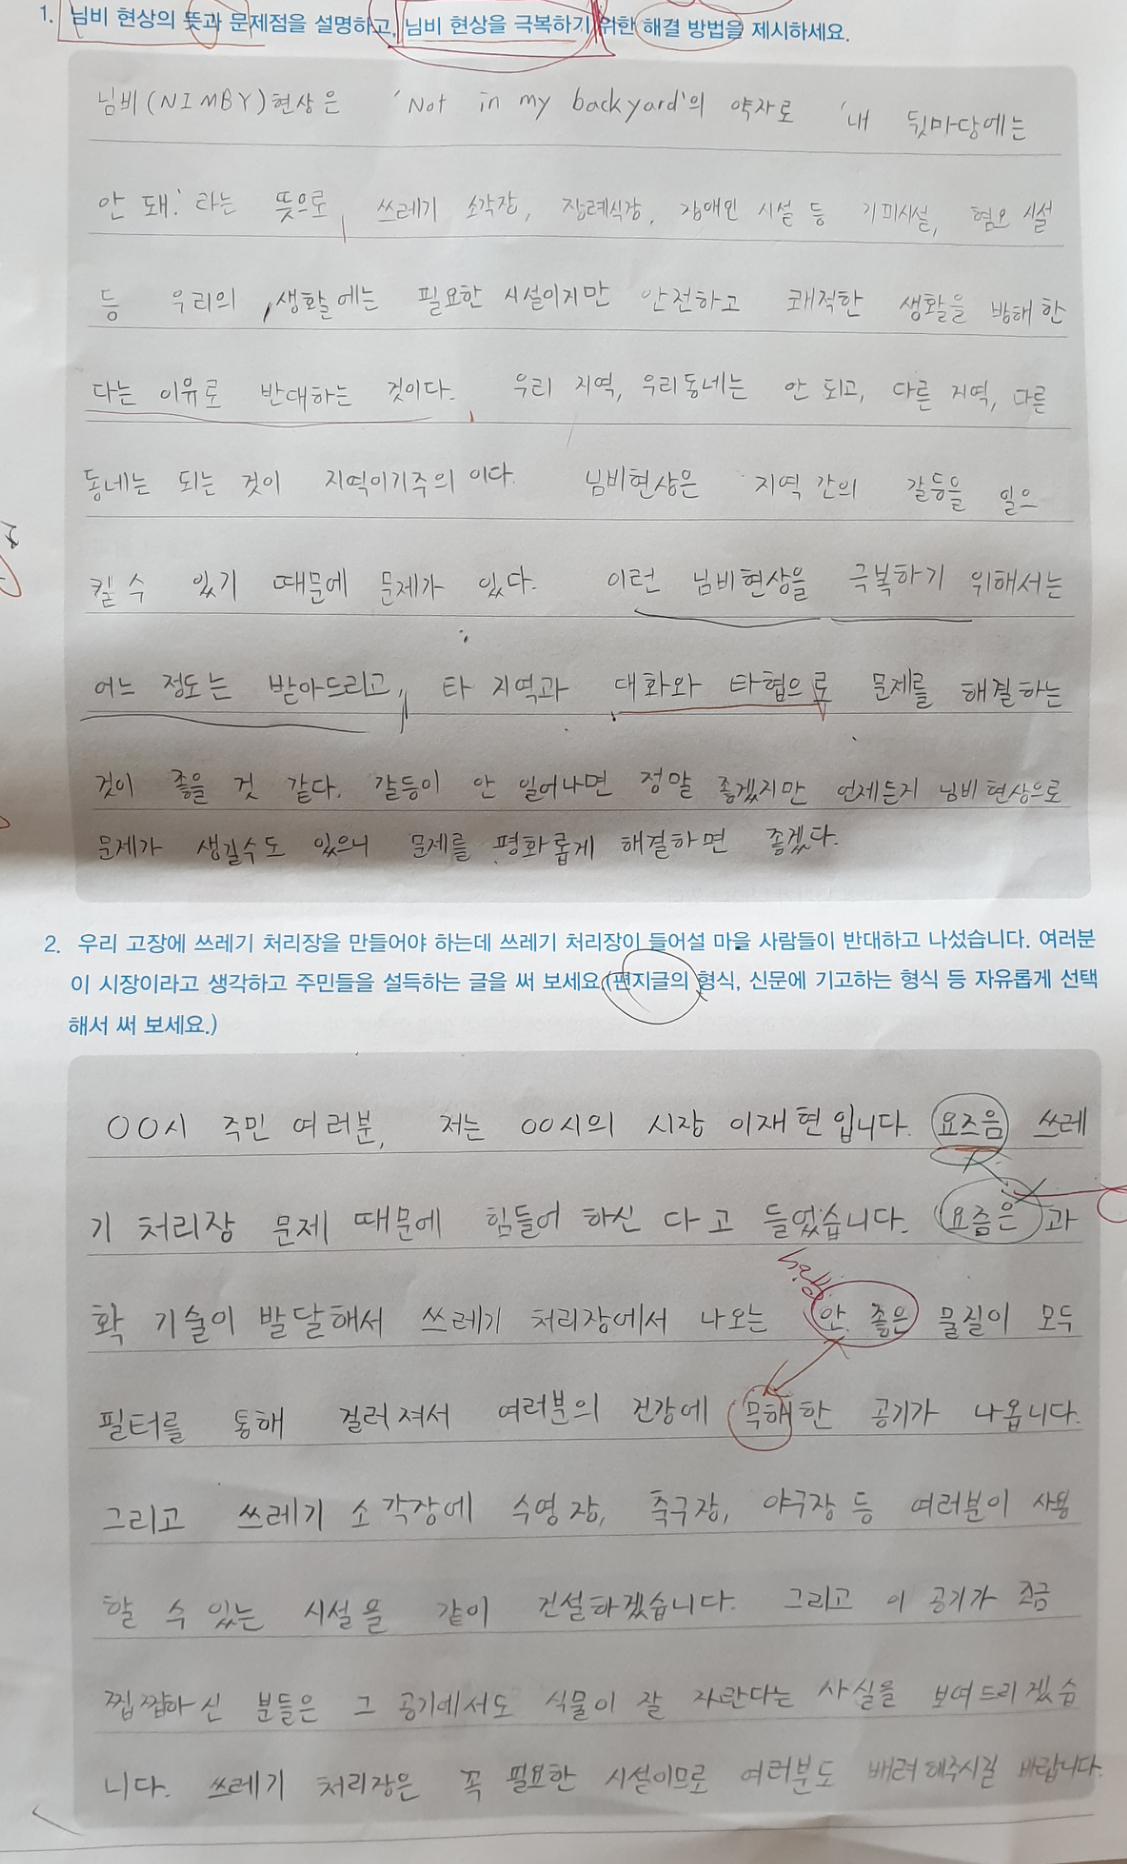 1. 님비 현상의 뜻과 문제점을 설명하고, 님비 현상을 극복하기 위한 해결 방법을 제시하세요.
님비(NIMBY)현상은 'Not in my backyard'의 약자로 '내 뒷마당에는
안 돼.' 라는 뜻으로, 쓰레기 소각장, 장례식장, 장애인 시설 등 기피시설, 혐오 시설
등 우리의 생활에는 필요한 시설이지만 안전하고 쾌적한 생활을 방해한
다는 이유로 반대하는 것이다. 우리 지역, 우리동네는 안 되고, 다른 지역, 다른
동네는 되는 것이 지역이기주의 이다. 님비현상은 지역 간의 갈등을 일으
킬 수 있기 때문에 문제가 있다. 이런 님비현상을 극복하기 위해서는
어느 정도는 받아드리고, 타 지역과 대화와 타협으로 문제를 해결하는
것이 좋을 것 같다. 갈등이 안 일어나면 정말 좋겠지만 언제든지 님비현상으로
문제가 생길수도 있으니 문제를 평화롭게 해결하면 좋겠다.
2. 우리 고장에 쓰레기 처리장을 만들어야 하는데 쓰레기 처리장이 들어설 마을 사람들이 반대하고 나섰습니다. 여러분
이 시장이라고 생각하고 주민들을 설득하는 글을 써 보세요.(편지글의 형식, 신문에 기고하는 형식 등 자유롭게 선택
해서 써 보세요.)
OO시 주민 여러분, 저는 OO시의 시장 이재현입니다. 요즈음 쓰레
기 처리장 문제 때문에 힘들어 하신 다고 들었습니다. 요즘은 과
학 기술이 발달해서 쓰레기 처리장에서 나오는 안 좋은 물질이 모두
필터를 통해 걸러져서 여러분의 건강에 무해한 공기가 나옵니다.
그리고 쓰레기 소각장에 수영장, 축구장, 야구장 등 여러분이 사용
할 수 있는 시설을 같이 건설하겠습니다. 그리고 이 공기가 조금
찝찝하신 분들은 그 공기에서도 식물이 잘 자란다는 사실을 보여드리겠습
니다. 쓰레기 처리장은 꼭 필요한 시설이므로 여러분도 배려해주시길 바랍니다.